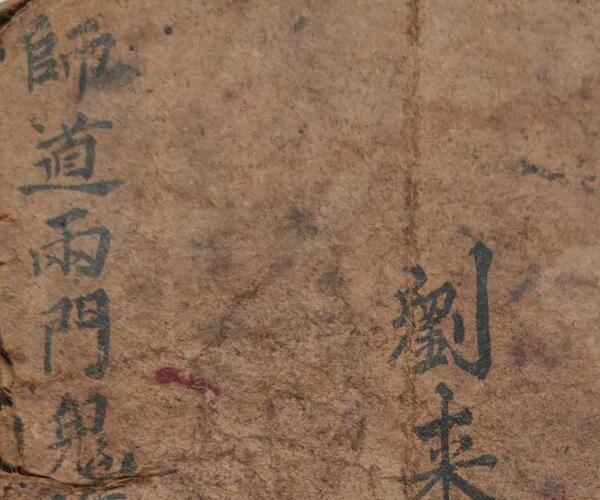 劉来
師道兩門鬼